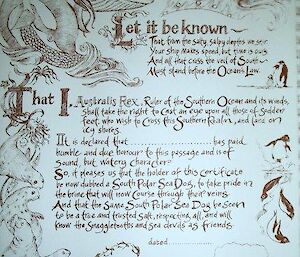 Let it be known ~
That from the salty, salpy depths we spring
Your ship makes speed, but time is ours
And all that cross the veil of South
Must stand before the Oceans Law.
That I, Australis Rex, Ruler of the Southern Ocean and its winds,
shall take the right to Cast an eye upon all those of Sodden
feet, who wish to Cross this Southern Realm, and land on
icy shores.
It is declared that ............................ has paid
humble and due honour to this passage and is of
sound, but watery character
So, it pleases us that the holder of this Certificate
be now dubbed a South Polar Sea Dog, to take pride in
the brine that will now course through their veins.
And that the same South Polar Sea Dog be seen
to be a true and trusted salt, respecting all, and will
know the Snaggletooths and sea devils as friends.
dated ..................